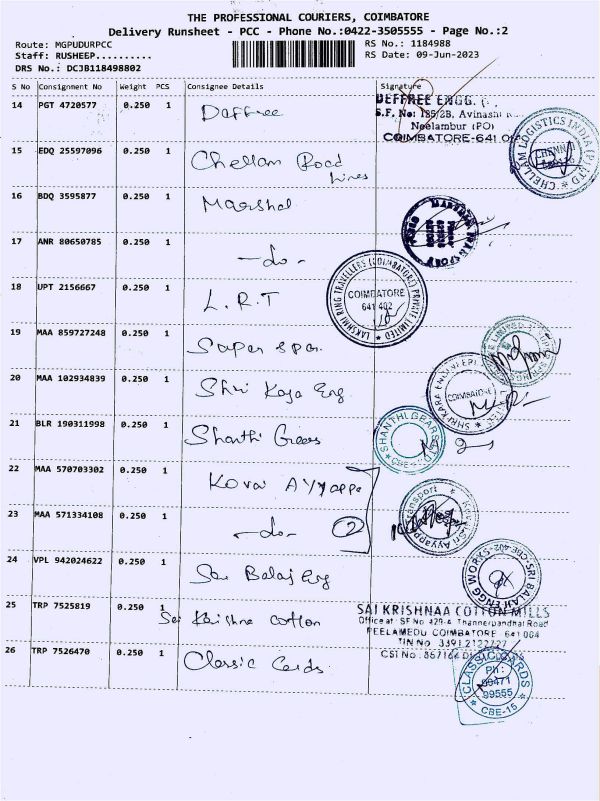 THE PROFESSIONAL COURIERS, COIMBATORE
Delivery Runsheet - PCC - Phone No.:0422-3505555 - Page No.:2
Route: MGPUDURPCC
Staff: RUSHEEP..........
DRS No.: DCJB118498802
RS No.: 1184988
RS Date: 09-Jun-2023
S No Consignment No Weight PCS Consignee Details Signature
14 PGT 4720577 0.250 1 Daffree
DEFFREE ENGG.
S.F. No: 125/2B, Avinashi
Neelambur (PO)
COIMBATORE-641
15 EDQ 25597096 0.250 1 Chellam Road
Lines
CHELLAM LOGISTICS INDIA (P) LTD
CHENNAI
16 BDQ 3595877 0.250 1 Marshal
17 ANR 80650785 0.250 1 -do-
18 UPT 2156667 0.250 1 L.R.T
LAKSHMI RING TRAVELLERS (COIMBATORE) PRIVATE LIMITED
COIMBATORE
641 402
19 MAA 859727248 0.250 1 Super spn.
20 MAA 102934839 0.250 1 Shri Kara Eng
SHRI KARA ENGINEERING
COIMBATORE
21 BLR 190311998 0.250 1 Shanthi Gears
SHANTHI GEARS
CBE
22 MAA 570703302 0.250 1 Kovai Ayyappa
23 MAA 571334108 0.250 1 -do- 2
Kovai Sri Ayyappa Transport
24 VPL 942024622 0.250 1 Sri Balaji Eng
SRI BALAJI ENGG WORKS
25 TRP 7525819 0.250 1 Sai Krishna cotton
SAI KRISHNAA COTTON MILLS
Office at: SF No 429-4 Thannerpandhal Road
PEELAMEDU COIMBATORE - 641 004
TIN No 33912122727
CST No.
26 TRP 7526470 0.250 1 Classic Cards
CLASSIC CARDS
Ph:
99555
CBE-15